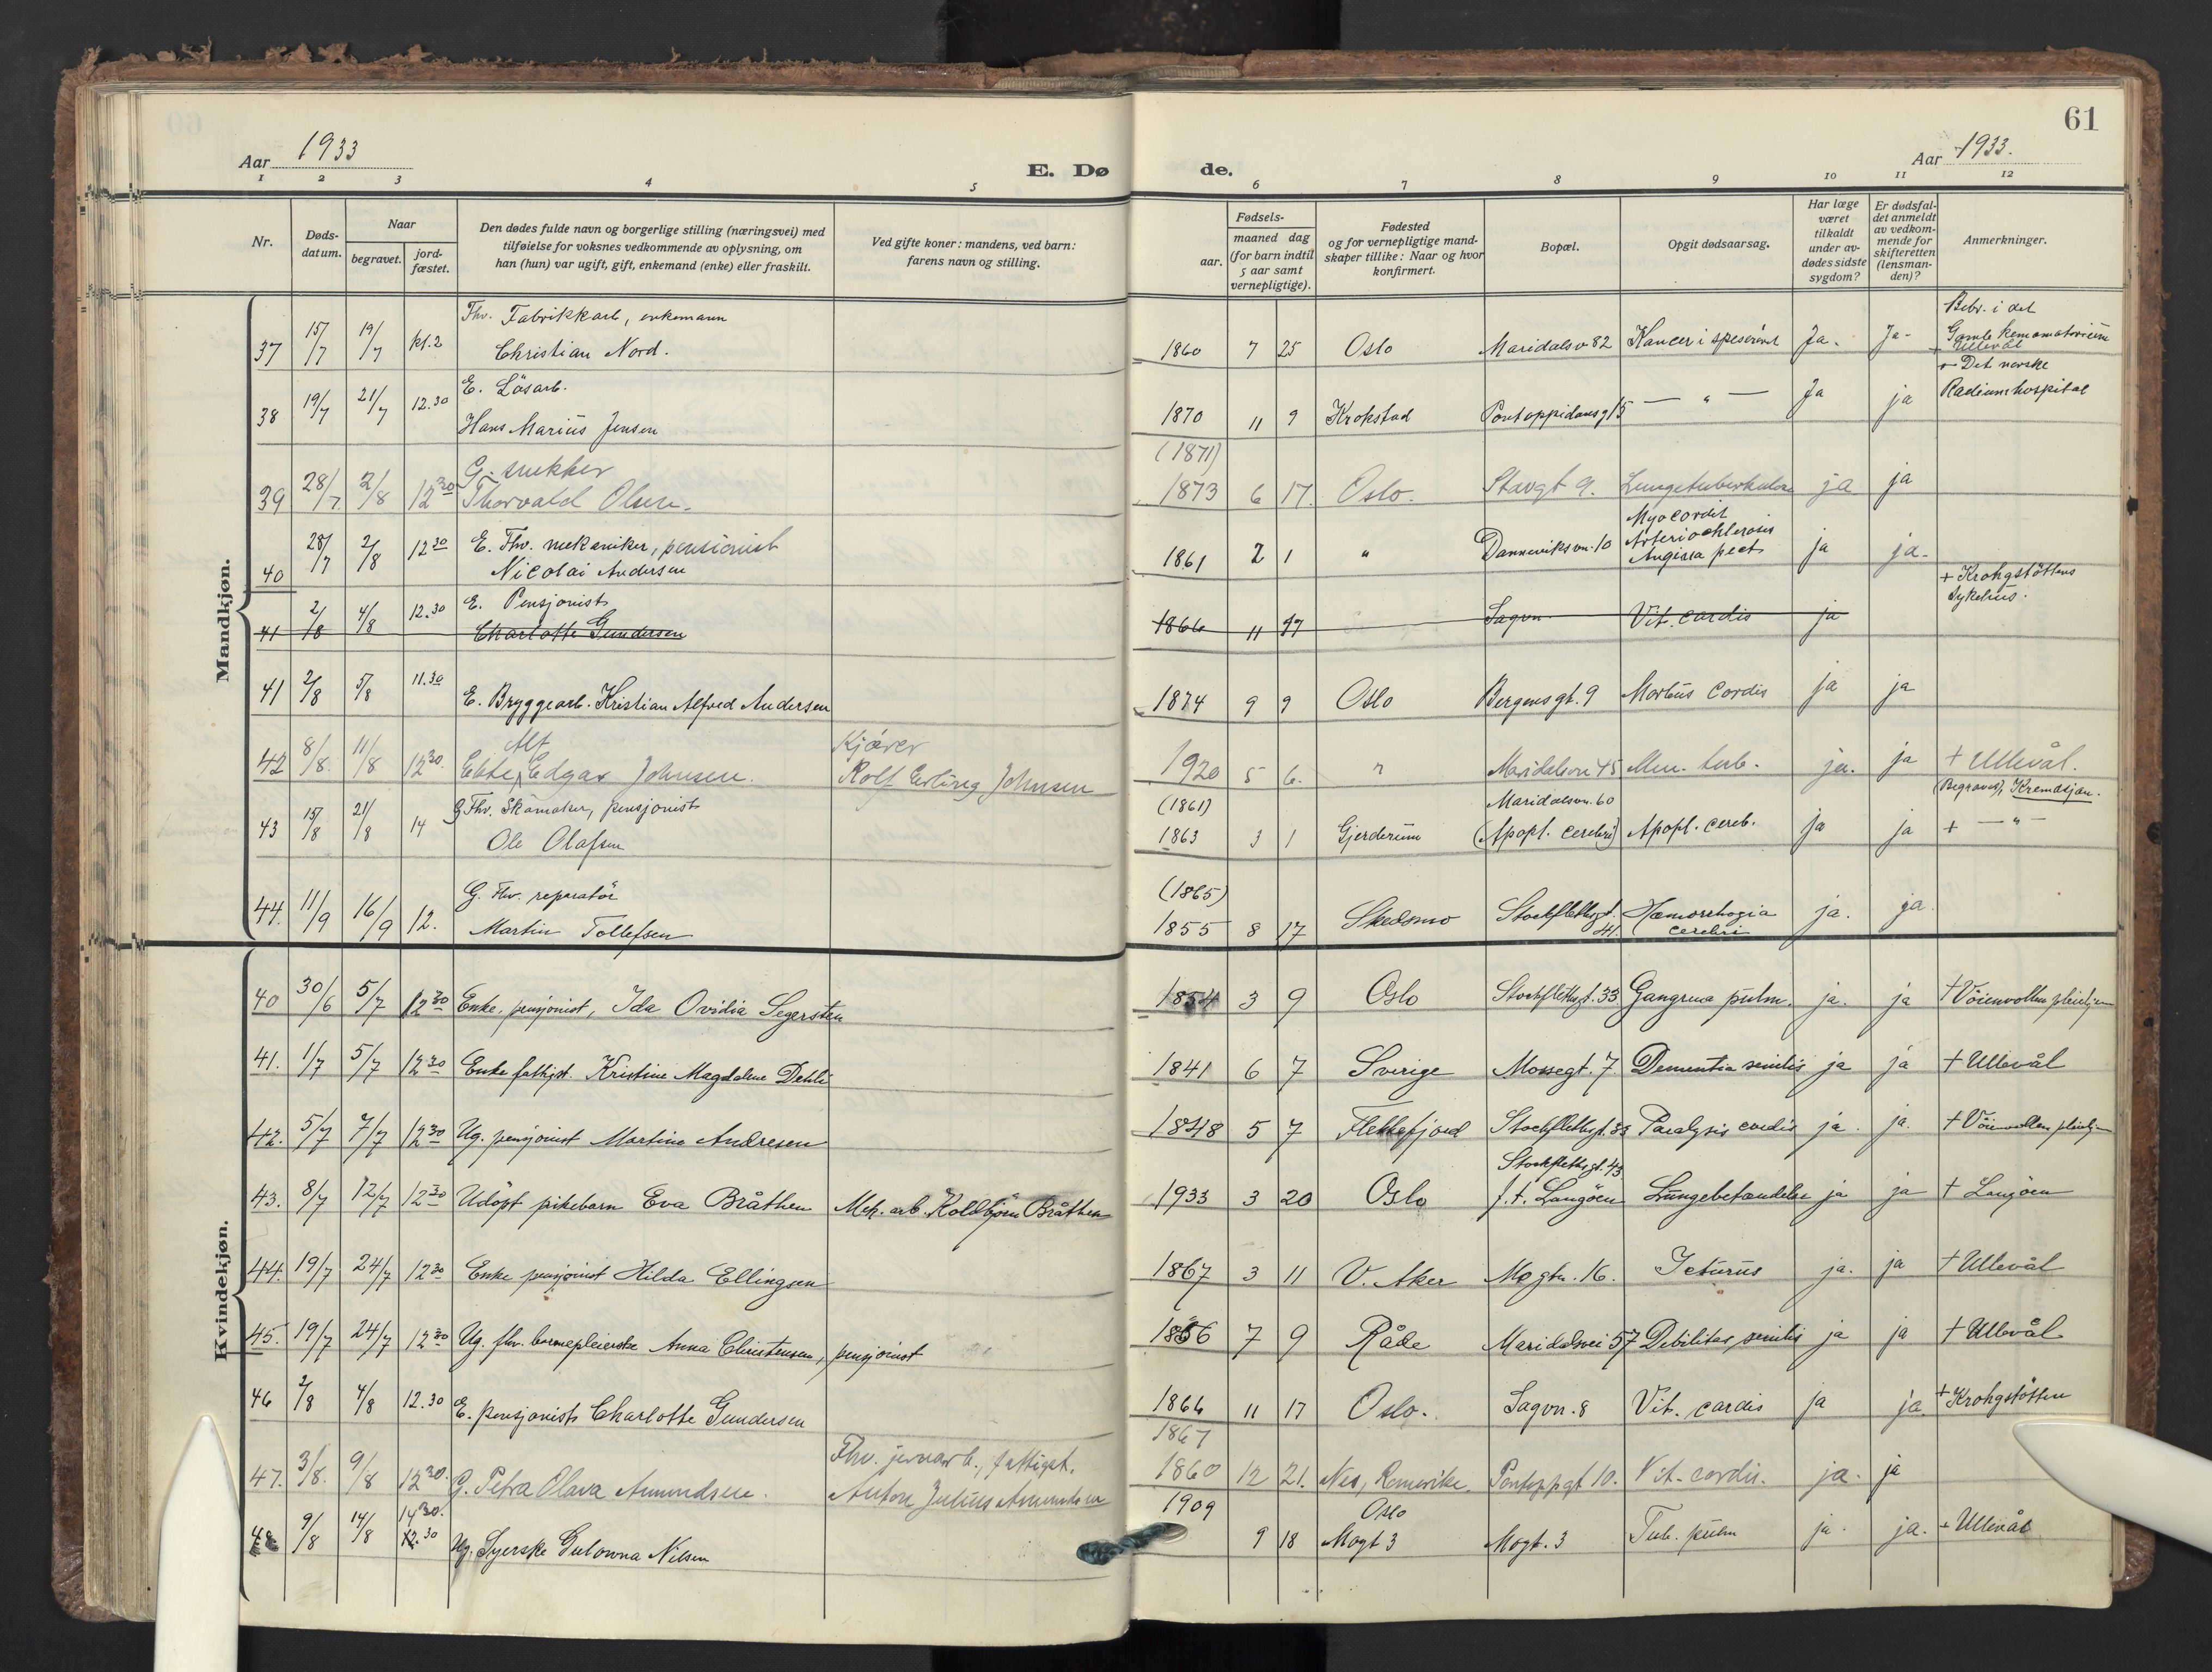 61
Aar 1933
E. Dø de.
Aar 1933.
1 2 3 4 5 6 7 8 9 10 11 12
Nr.
Døds-
datum.
Naar
begravet.
jord-
fæstet.
Den dødes fulde navn og borgerlige stilling (næringsvei) med
tilføielse for voksnes vedkommende av oplysning, om
han (hun) var ugift, gift, enkemand (enke) eller fraskilt.
Ved gifte koner: mandens, ved barn:
farens navn og stilling.
Fødsels-
aar.
maaned dag
(for barn indtil
5 aar samt
vernepligtige).
Fødested
og for vernepligtige mand-
skaper tillike: Naar og hvor
konfirmert.
Bopæl.
Opgit dødsaarsag.
Har læge
været
tilkaldt
under av-
dødes sidste
sygdom?
Er dødsfal-
det anmeldt
av vedkom-
mende for
skifteretten
(lensman-
den)?
Anmerkninger.
Mandkjøn.
Thv. Fabrikkarb, enkemann
Bebr. i det
Gamle kemamatorium
37 15/7 19/7 kl.2 Christian Nord. 1860 7 25 Oslo Maridalsv 82 Kancer i Ja. Ja-
+ Ullevål
+ Det norske
Radiumhospital
E. Løsarb.
38 19/7 21/7 12.30 Hans Marius Jensen 1870 11 9 Krokstad Pontoppidansg 15 — " — Ja ja
G. snekker (1871)
39 28/7. 2/8 12 30 Thorvald Olsen. 1873 6 17. Oslo. Stavgt 9. Lungetuberkulose ja ja
Myocordit
Arteriochlerosis
40 28/7 2/8 12 30 E. Thv. mekaniker, pensionist
Nicolai Andersen 1861 2 1 " Danneviksvn. 10 Angina pect. ja ja.
+ Krohgstöttens
Sykehus.
E. Pensjonist
41 2/8 4/8 12.30 Charlotte Gundersen 1866 11 17 Sagvn. Vit. cardis ja
41 2/8 5/8 11.30 E. Bryggearb. Kristian Alfred Andersen 1874 9 9 Oslo Bergensgt. 9 Morbus Cordis ja ja
Alf Kjører
42 8/8. 11/8 12 30. Edgar Johnsen. Rolf Erling Johnsen 1920 5 6. " Maridalsvn 45 Men. tub. ja. ja + Ullevål.
(Begraves), Kremasjon.
G Thv. Skomaker, pensjonist (1861) Maridalsvn. 60
43 15/8 21/8 14 Ole Olafsen 1863 3 1 Gjerderum (Apopl. cerebri) Apopl. cereb. ja ja + — " —
G. Thv. reparatör (1865)
44. 11/9 16/9 12. Martin Tollefsen 1855 8 17 Skedsmo Stockflethsgt. 41. Hæmorrhagia cerebri ja. ja.
Kvindekjøn.
40 30/6 5/7 12 30 Enke, pensjonist, Ida Ovidia Segersten 1854 3 9 Oslo Stockflethsgt. 33 Gangrena pulm. ja. ja + Vöienvollen pleiehjem
41. 1/7 5/7 12 30 Enke fattigst. Kristine Magdalene Dehli 1841 6 7 Sverige Mossegt. 7. Dementia senilis ja ja + Ullevål
42. 5/7 7/7 12 30 Ug. pensjonist Martine Andresen 1848 5 7 Flekkefjord Stockflethsgt. 33 Paralysis cordis ja. ja. + Vöienvollen pleiehjem
Stockflethsgt. 43
43. 8/7 12/7 12 30 Udöpt pikebarn Eva Bråthen Mek. arb. Koldbjörn Bråthen 1933 3 20 Oslo f.t. Langöen Lungebetændelse ja ja + Langöen
44. 19/7 24/7 12 30 Enke pensjonist Hilda Ellingsen 1867 3 11 V. Aker Mogtn. 16. Icturus ja. ja + Ullevål
45. 19/7 24/7 12 30 Ug. fhv. barnepleierske Anna Christensen, pensjonist 1856 7 9 Råde Maridalsvei 57 Debilitas senilis ja ja + Ullevål
46 2/8 4/8 12.30 E. pensjonist Charlotte Gundersen 1866 11 17 Oslo. Sagvn. 8 Vit. cardis ja ja. + Krohgstötten
Fhv. jernarb., fattigst. 1867
47. 3/8. 9/8 12 30. G. Petra Olava Amundsen. Anton Julius Amundsen 1860 12 21. Nes, Romerike. Pontoppgt 10. Vit. cordis. ja. ja
14 30. 1909 Oslo
48 9/8 14/8 12.30 Ug. Syerske Gulowna Nilsen 9 18 Mogt 3 Mogt. 3 Tub. pulm ja. ja. + Ullevål